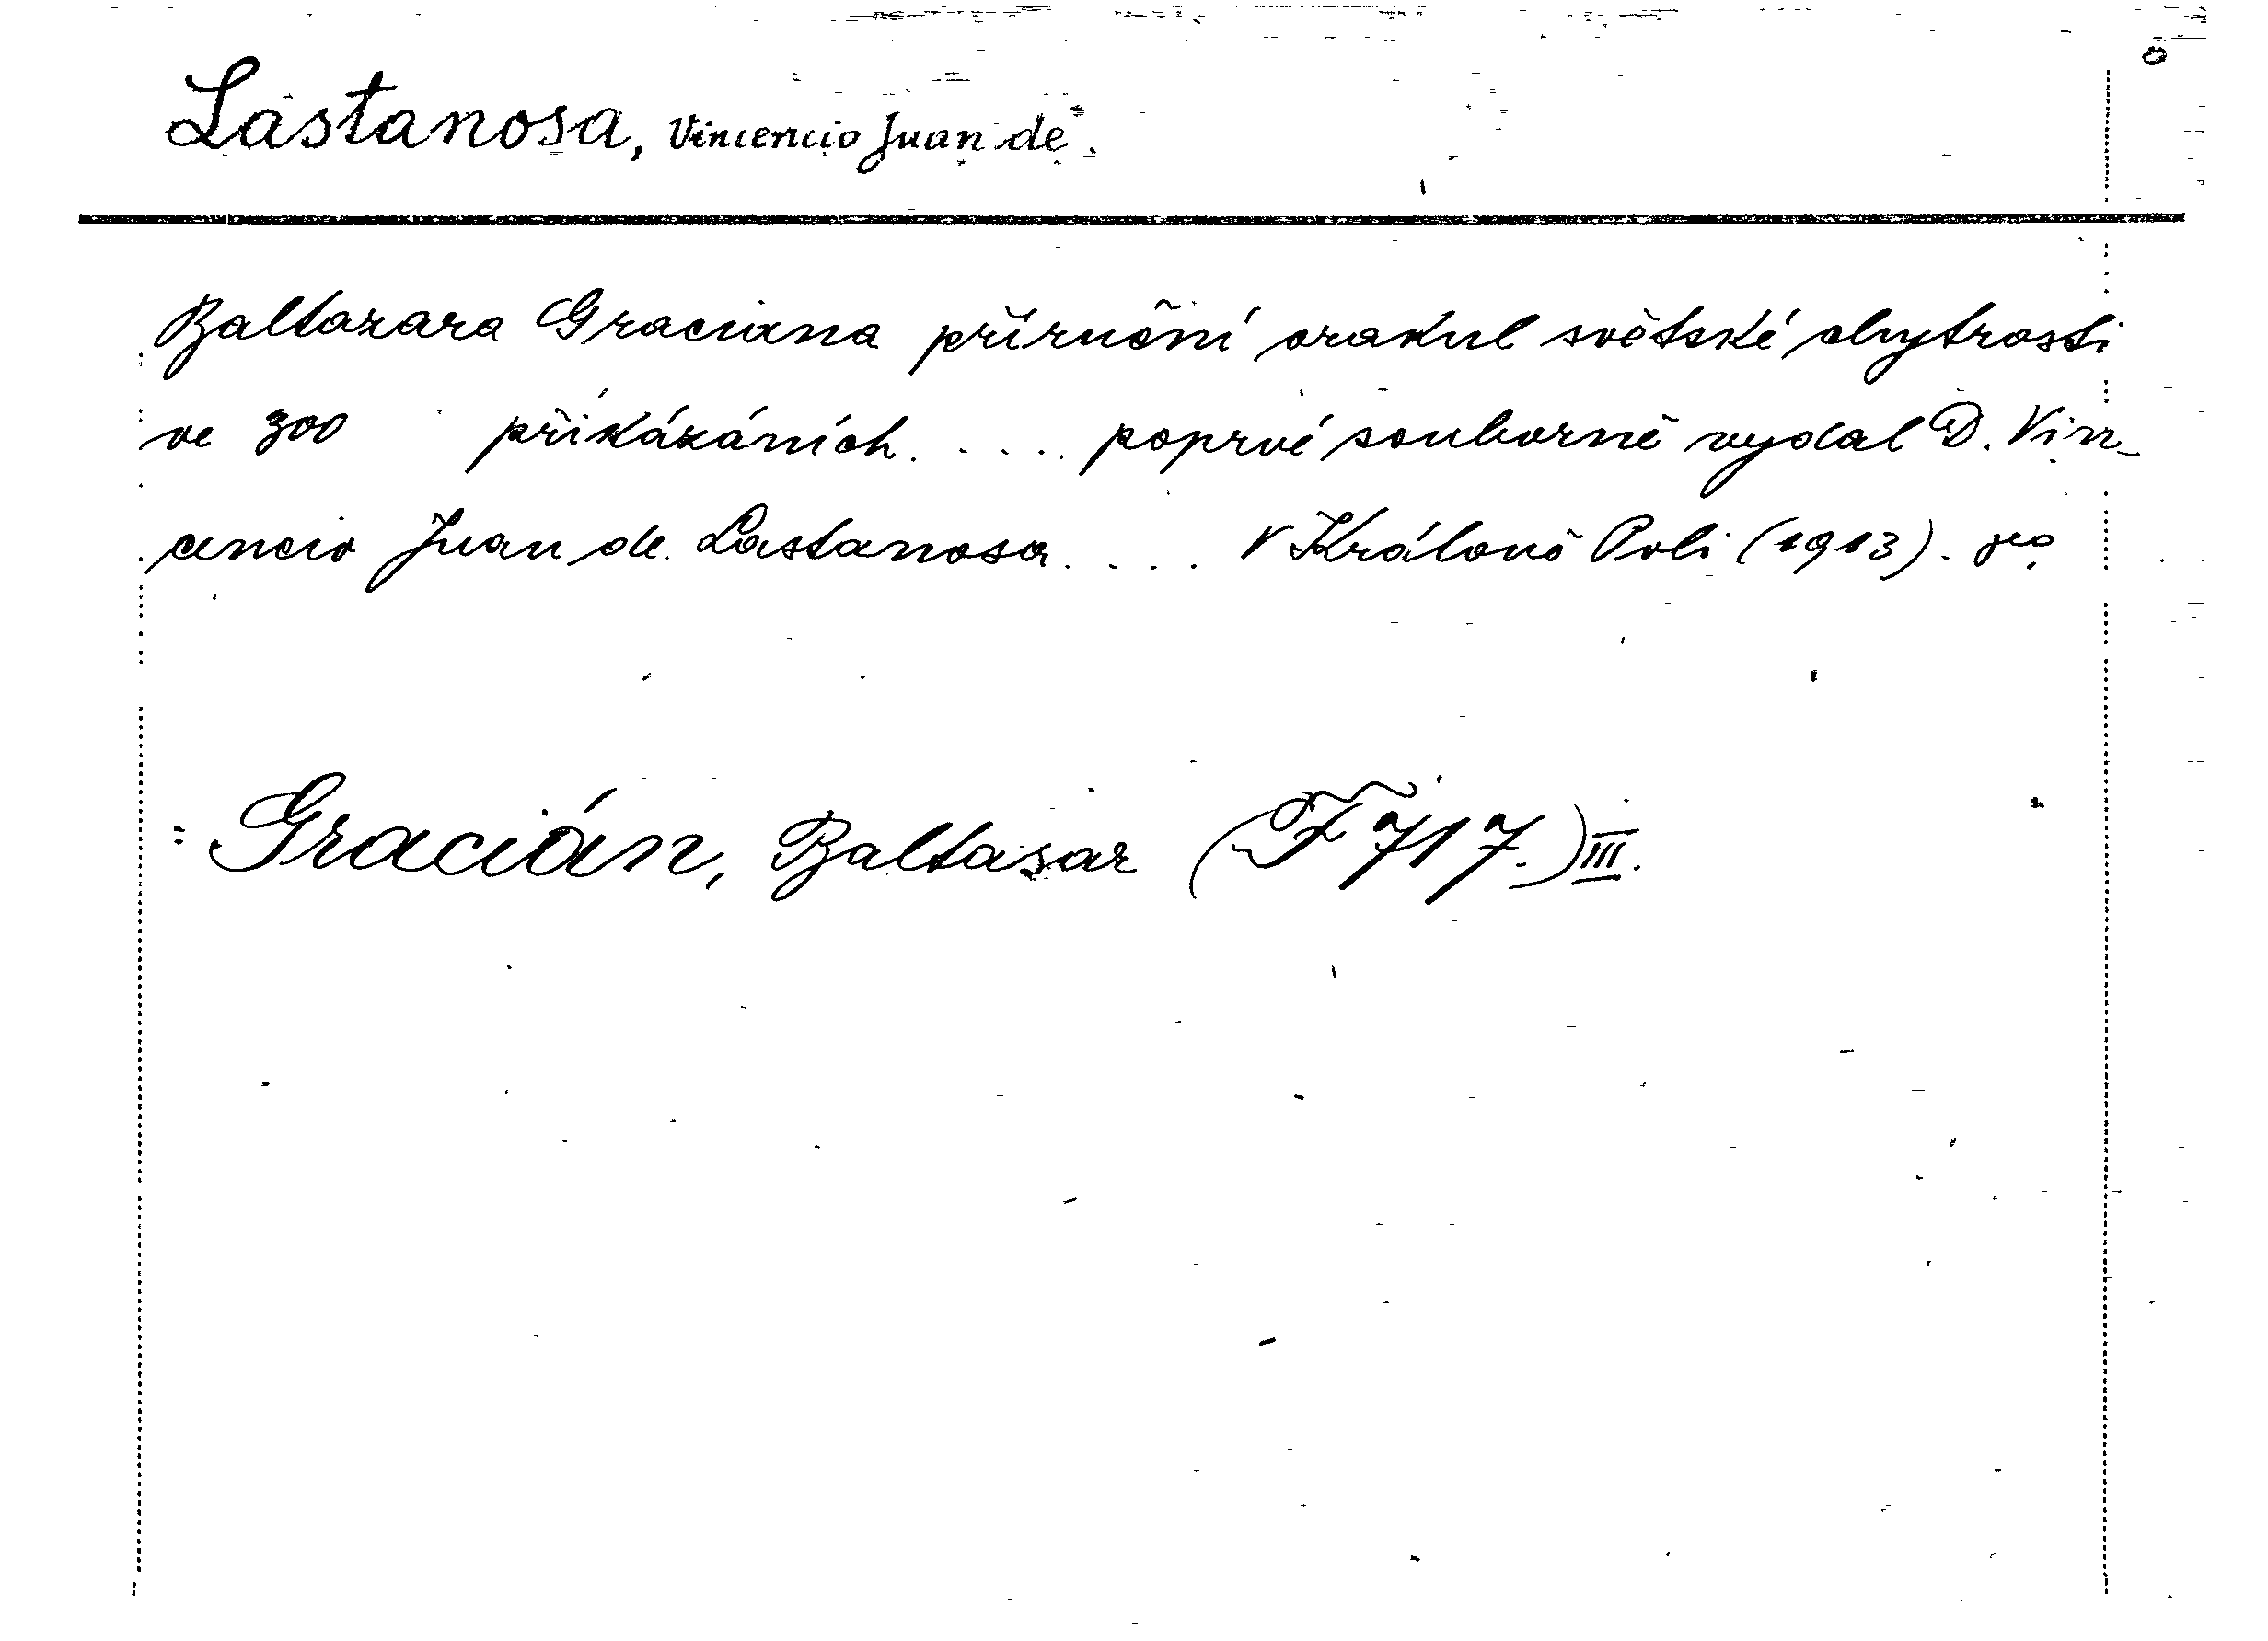 Lastanosa, Vincencio Juan de.
Baltazara Graciana příruční orakul světské chytrosti
ve 300 přikázáních. .... poprvé souborně vydal D. Vin-
cencio Juan de Lastanosa .... V Králově Poli (1913). 8°.
= Gracián, Baltasar (F 717.) III.